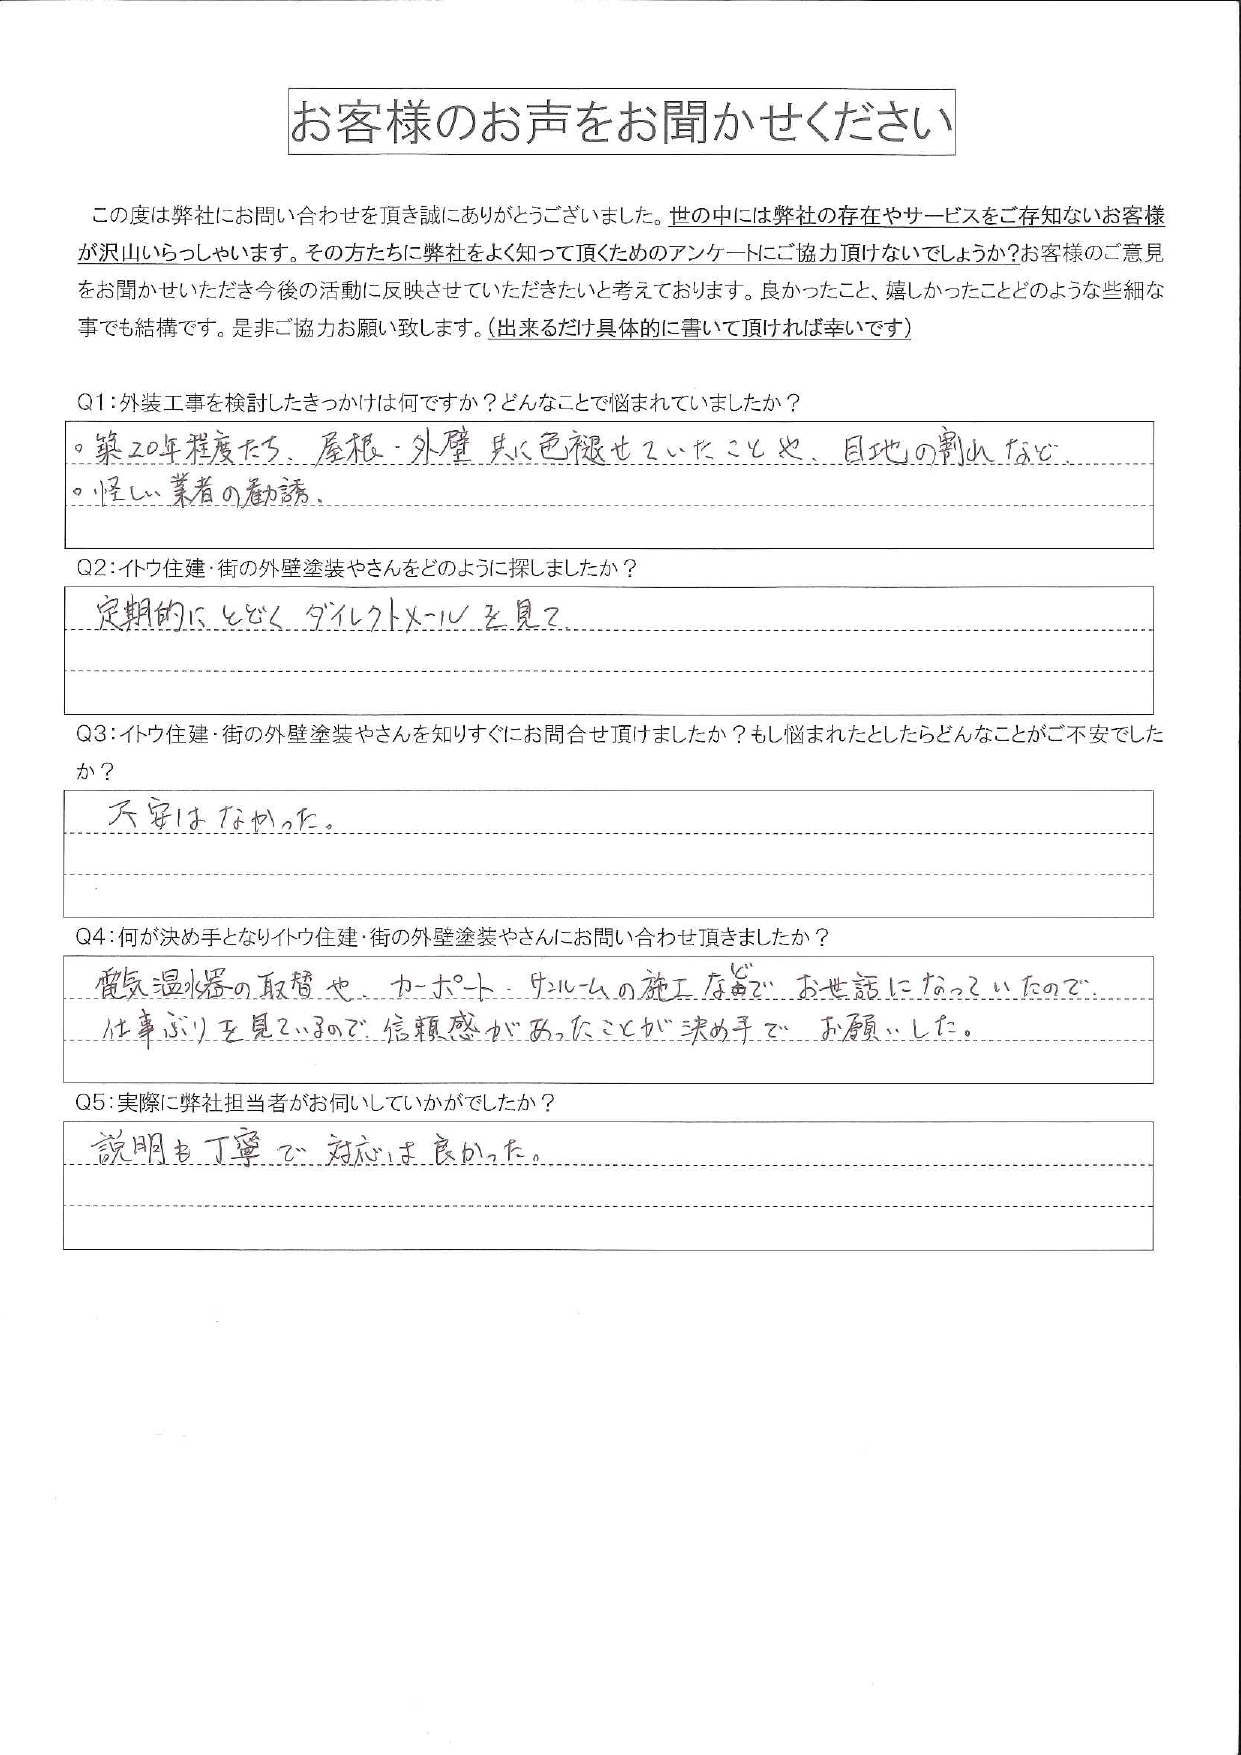 お客様のお声をお聞かせください
この度は弊社にお問い合わせを頂き誠にありがとうございました。世の中には弊社の存在やサービスをご存知ないお客様
が沢山いらっしゃいます。その方たちに弊社をよく知って頂くためのアンケートにご協力頂けないでしょうか?お客様のご意見
をお聞かせいただき今後の活動に反映させていただきたいと考えております。良かったこと、嬉しかったことどのような些細な
事でも結構です。是非ご協力お願い致します。(出来るだけ具体的に書いて頂ければ幸いです)
Q1:外装工事を検討したきっかけは何ですか?どんなことで悩まれていましたか?
。築20年程度たち、屋根・外壁 共に色褪せていたことや、目地の割れなど、
。怪しい業者の勧誘、
Q2:イトウ住建・街の外壁塗装やさんをどのように探しましたか?
定期的にとどくダイレクトメールを見て、
Q3:イトウ住建・街の外壁塗装やさんを知りすぐにお問合せ頂けましたか?もし悩まれたとしたらどんなことがご不安でした
か?
不安はなかった。
Q4:何が決め手となりイトウ住建・街の外壁塗装やさんにお問い合わせ頂きましたか?
電気温水器の取替や、カーポート・サンルームの施工などで お世話になっていたので、
仕事ぶりを見ているので、信頼感があったことが決め手で お願いした。
Q5:実際に弊社担当者がお伺いしていかがでしたか?
説明も丁寧で 対応は良かった。